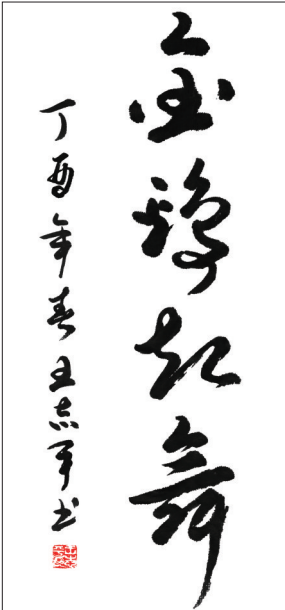 金鸡起舞
丁酉年春王志军书